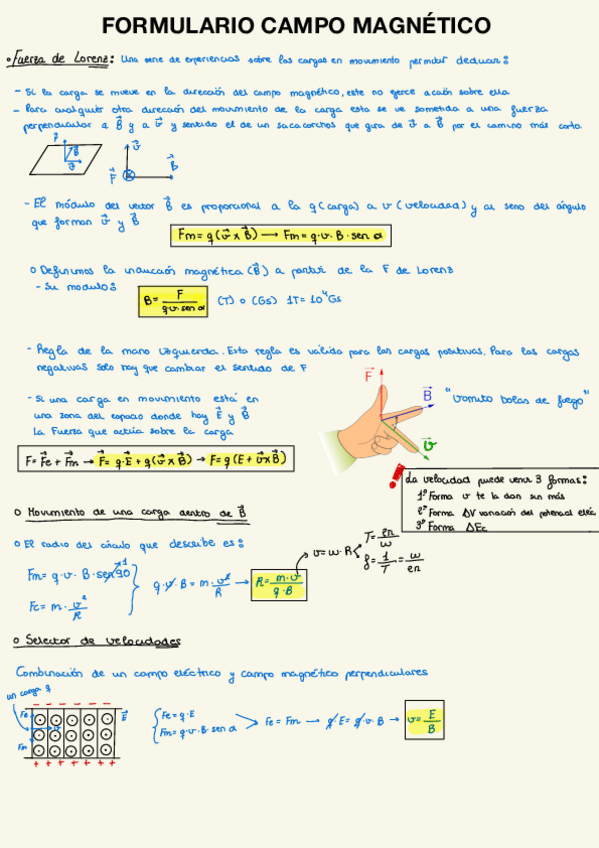 FORMULARIO CAMPO MAGNÉTICO
• Fuerza de Lorenz: Una serie de experiencias sobre las cargas en movimiento permiten deducir:
- Si la carga se mueve en la dirección del campo magnético, este no ejerce acción sobre ella
- Para cualquier otra dirección del movimiento de la carga esta se ve sometida a una fuerza
perpendicular a B⃗ y a v⃗ y sentido el de un sacacorchos que gira de v⃗ a B⃗ por el camino más corto.
F⃗ B⃗ v⃗
v⃗ B⃗ F⃗
- El módulo del vector B⃗ es proporcional a la q (carga) a v (velocidad) y al seno del ángulo
que forman v⃗ y B⃗
Fm = q (v⃗ x B⃗) → Fm = q·v·B·sen α
o Definimos la inducción magnética (B⃗) a partir de la F de Lorenz
- Su modulo:
B = F / q·v·sen α (T) o (Gs) 1T = 10⁴Gs
- Regla de la mano izquierda. Esta regla es válida para las cargas positivas. Para las cargas
negativas solo hay que cambiar el sentido de F
F⃗ B⃗ v⃗
"vomito bolas de fuego"
- Si una carga en movimiento está en
una zona del espacio donde hay E⃗ y B⃗
La Fuerza que actúa sobre la carga
F = F⃗e + F⃗m → F⃗ = q·E⃗ + q(v⃗ x B⃗) → F = q(E + v⃗ x B⃗)
! La velocidad puede venir 3 formas:
1º Forma v te la dan sin más
2º Forma ΔV variación del potencial eléc
3º Forma ΔEc
o Movimiento de una carga dentro de B⃗
o El radio del círculo que describe es:
Fm = q·v·B·sen90 1
Fc = m·v²/R
q·v·B = m·v²/R → R = m·v / q·B
v = w·R
T = 2π/w
f = 1/T = w/2π
o Selector de velocidades
Combinación de un campo eléctrico y campo magnético perpendiculares
un carga q
- - - - - -
Fe E⃗
Fm
+ + + + + + +
Fe = q·E
Fm = q·v·B·sen α
Fe = Fm → q·E = q·v·B → v = E/B